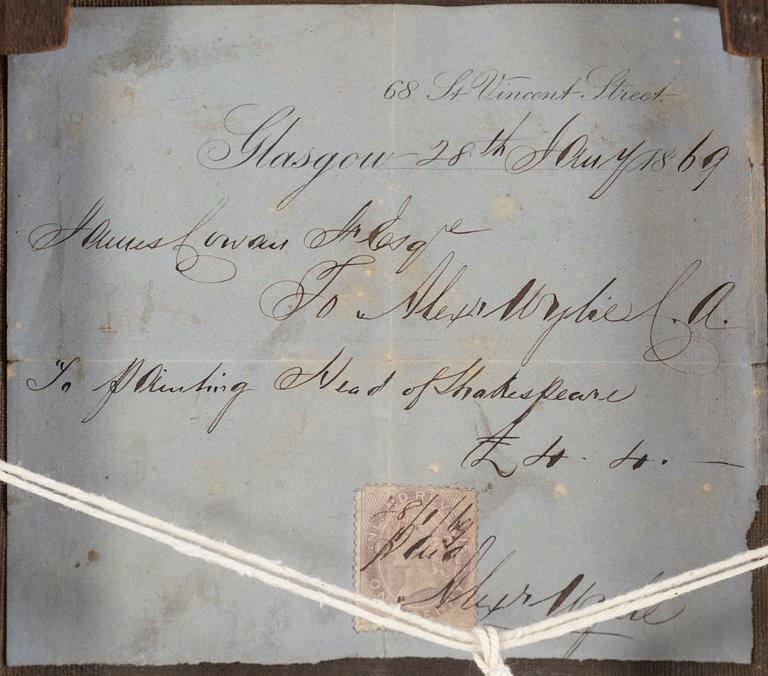 68 St Vincent Street
Glasgow 28th Jany 1869
James Cowan Jr Esqre
To Alexr Wylie C.A.
To painting Head of Shakespeare
£4.4.—
INLAND REV
28/1/69
Paid
Alexr Wylie